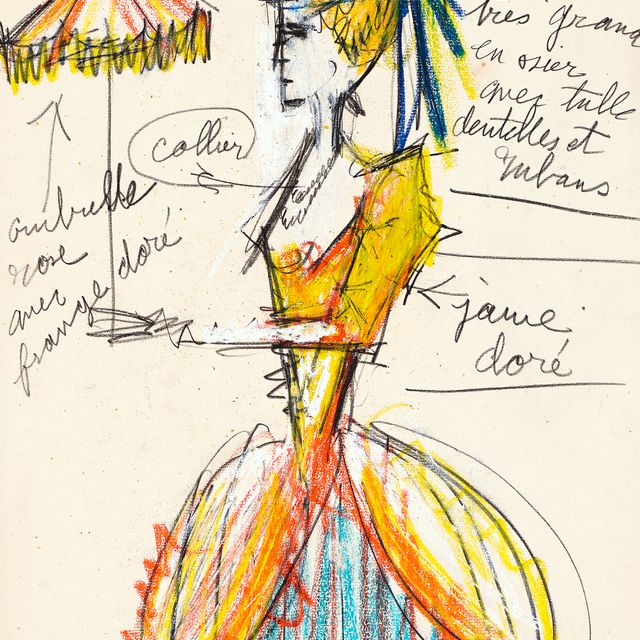 très grand
en osier
avec tulle
dentelles et
rubans
collier
ombrelle
rose
avec
frange doré
jaune
doré